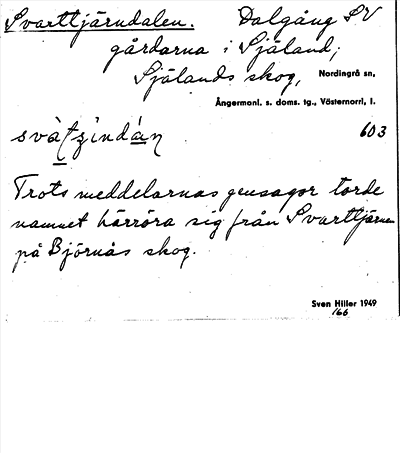 Svarttjärndalen. Dalgång SV
gårdarna i Själand;
Själands skog, Nordingrå sn,
Ångermanl. s. doms. tg., Västernorrl. l.
603
Trots meddelarnas gensagor torde
namnet härröra sig från Svarttjärnen
på Björnås skog.
Sven Hiller 1949
166